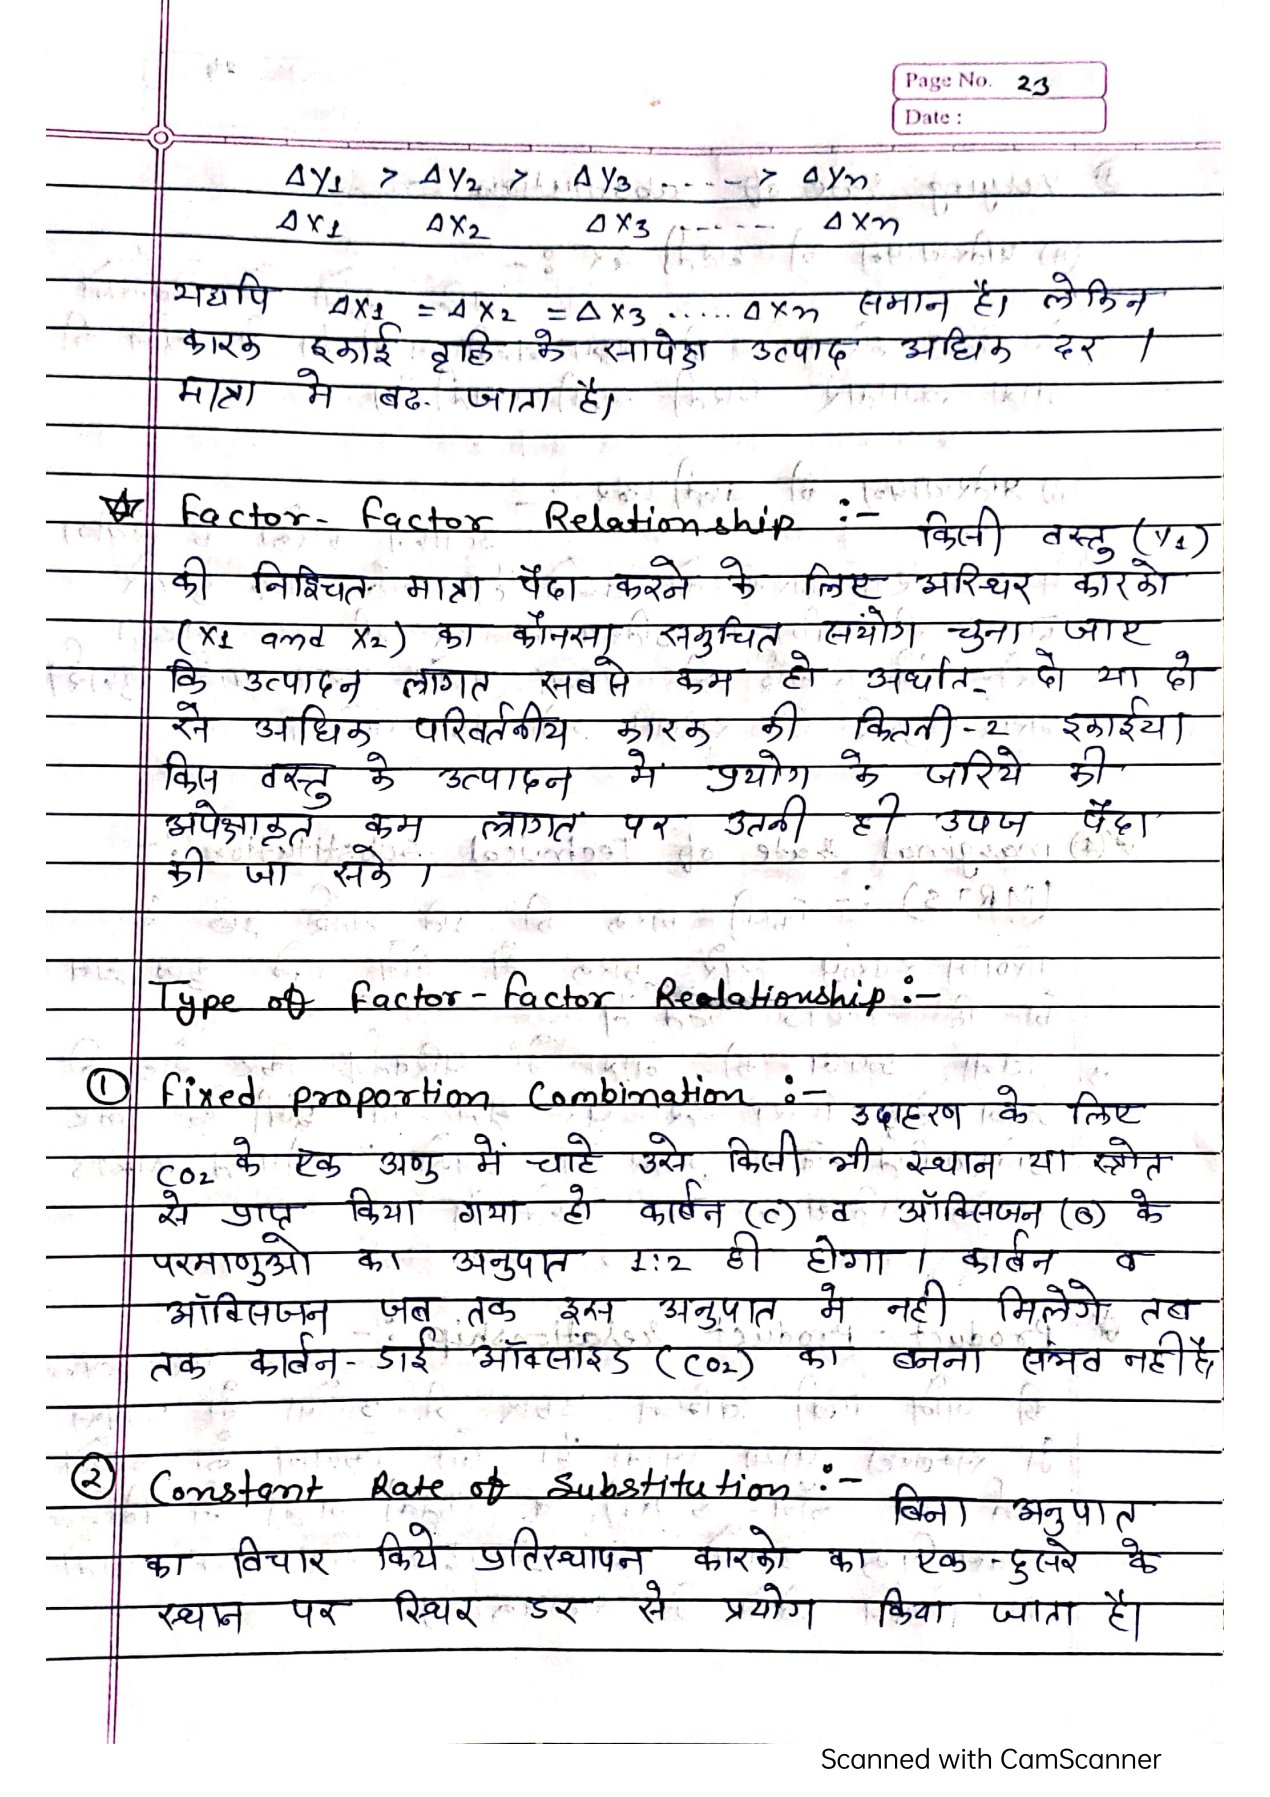 Page No. 23
Date :
Δy1 > Δy2 > Δy3 ..... > Δyn
Δx1 Δx2 Δx3 ...... Δxn
यद्यपि Δx1 = Δx2 = Δx3 ..... Δxn समान है। लेकिन
कारक इकाई वृद्धि के सापेक्ष उत्पाद अधिक दर /
मात्रा मे बढ जाता है।
☆ Factor - Factor Relationship :- किसी वस्तु (Y1)
की निश्चित मात्रा पैदा करने के लिए अस्थिर कारको
(X1 and X2) का कौनसा समुचित संयोग चुना जाए
कि उत्पादन लागत सबसे कम हो अर्थात- दो या दो
से अधिक परिवर्तनीय कारक की कितनी-2 इकाईया
किस वस्तु के उत्पादन में प्रयोग के जरिये की
अपेक्षाकृत कम लागत पर उतनी ही उपज पैदा
की जा सके ।
Type of Factor - Factor Realationship :-
① Fixed proportion Combination :- उदाहरण के लिए
CO2 के एक अणु में चाहे उसे किसी भी स्थान या स्त्रोत
से प्राप्त किया गया हो कार्बन (C) व ऑक्सिजन (O) के
परमाणुओ का अनुपात 1:2 ही होगा । कार्बन व
ऑक्सिजन जब तक इस अनुपात मे नही मिलेगे तब
तक कार्बन - डाई ऑक्साइड (CO2) का बनना संभव नही है।
② Constant Rate of Substitution :- बिना अनुपात
का विचार किये प्रतिस्थापन कारको का एक - दुसरे के
स्थान पर स्थिर डर से प्रयोग किया जाता है।
Scanned with CamScanner